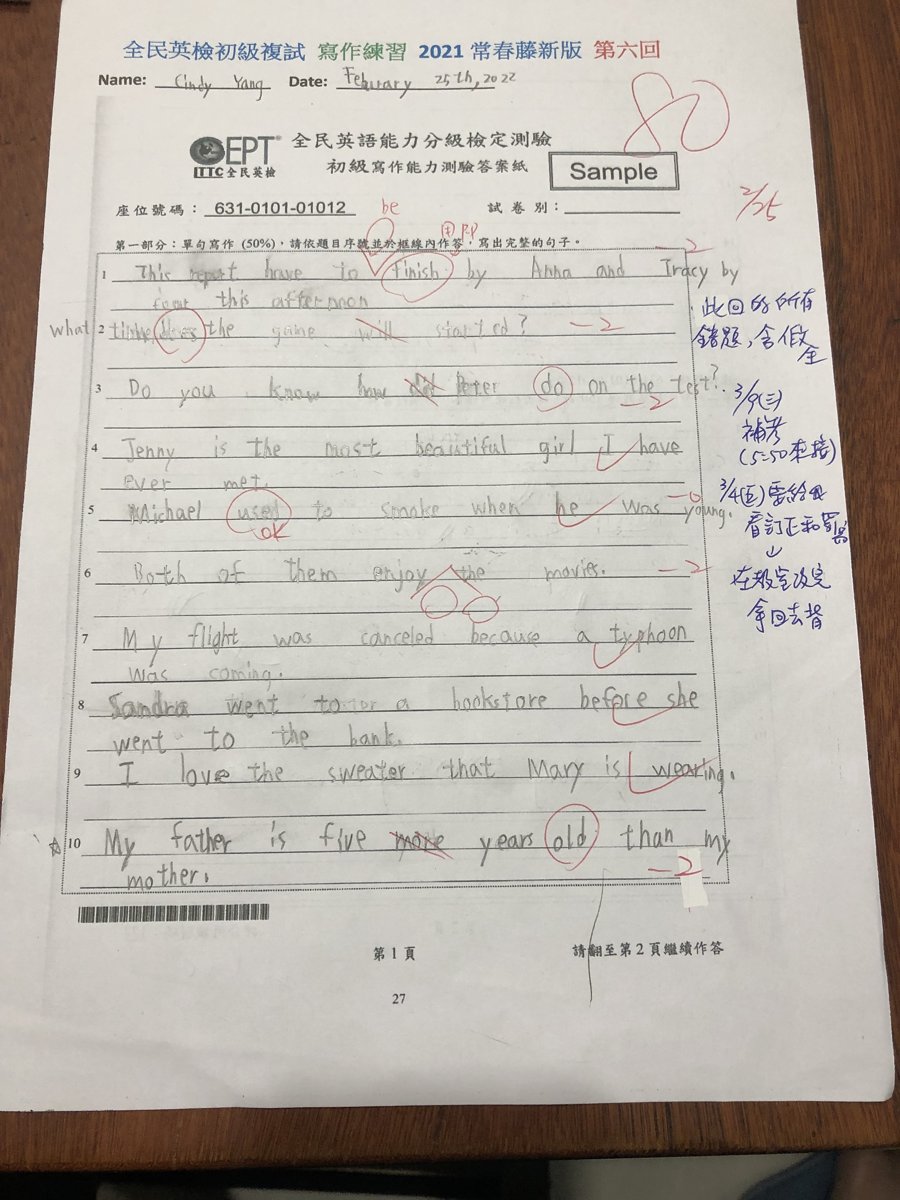 全民英檢初級複試 寫作練習 2021 常春藤新版 第六回
Name: Cindy Yang Date: February 25th, 2022
80
GEPT 全民英語能力分級檢定測驗
LTTC 全民英檢 初級寫作能力測驗答案紙 Sample
座位號碼: 631-0101-01012 試卷別:
2/25
be
P.P
第一部分:單句寫作 (50%),請依題目序號並於框線內作答,寫出完整的句子。
-2
1 This report have to finish by Anna and Tracy by
four this afternoon
what 2 time does the game will started? -2
3 Do you know how did Peter do on the test?
-2
4 Jenny is the most beautiful girl I have
ever met.
5 Michael used to smoke when he was young.
-0
OK
6 Both of them enjoy the movies. -2
7 My flight was canceled because a typhoon
was coming.
8 Sandra went to a bookstore before she
went to the bank.
9 I love the sweater that Mary is wearing.
☆10 My father is five more years old than my
mother. -2
此回的所有
錯題,含假
3/9(三)
補考
(5:50來接)
3/4(五)要給
看訂正和
↓
在教室改完
拿回去背
第 1 頁 請翻至第 2 頁繼續作答
27